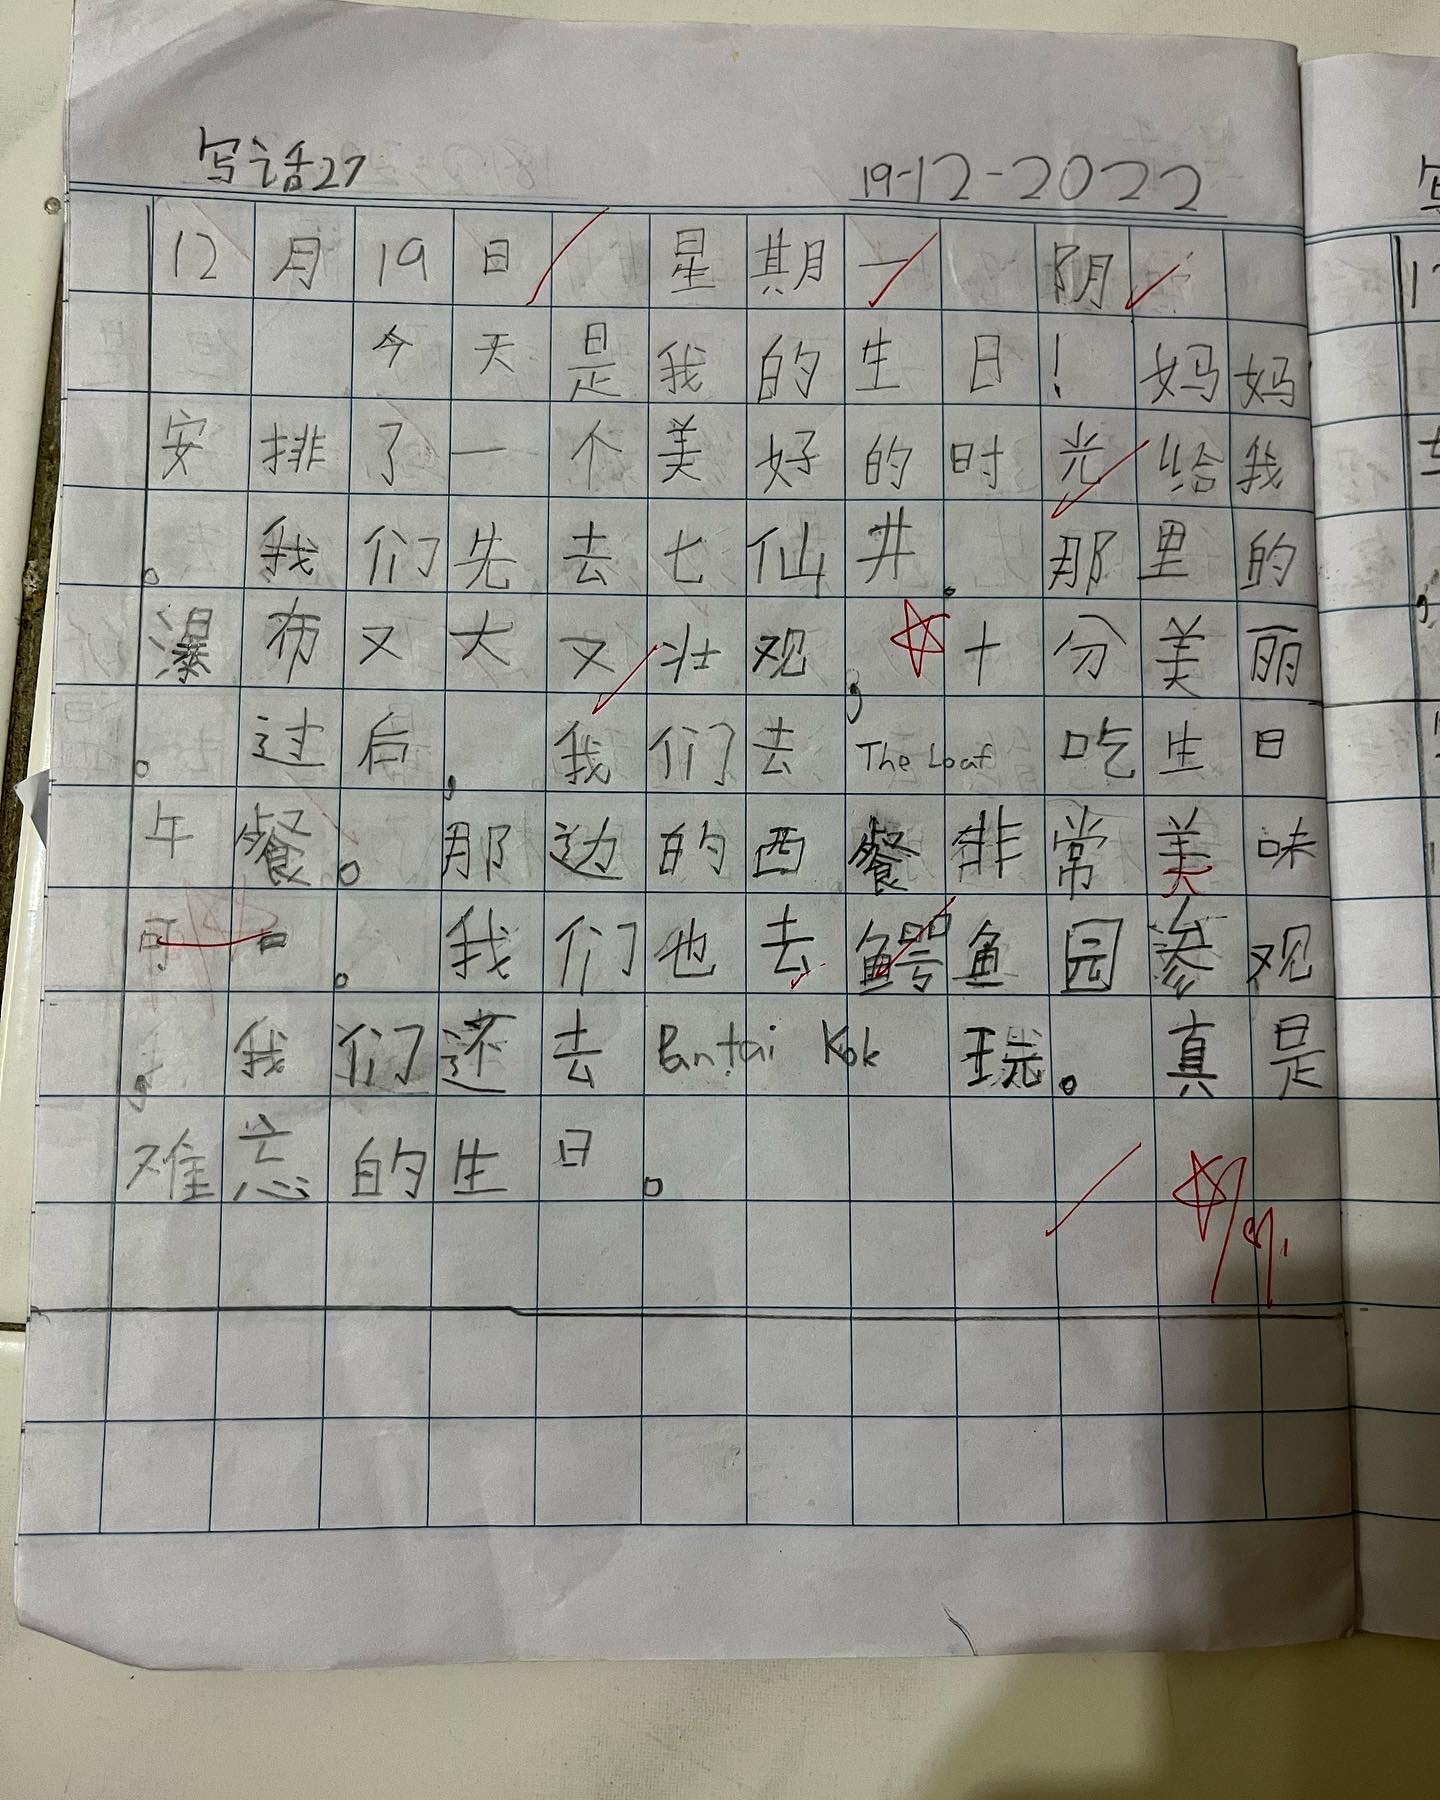 写话27 19-12-2022
12月19日 星期一 阴
今天是我的生日！妈妈
安排了一个美好的时光给我
。我们先去七仙井。那里的
瀑布又大又壮观，十分美丽
。过后，我们去The Loaf吃生日
午餐。那边的西餐非常美味
可口。我们也去鳄鱼园参观
，我们还去Pantai Kok玩。真是
难忘的生日。